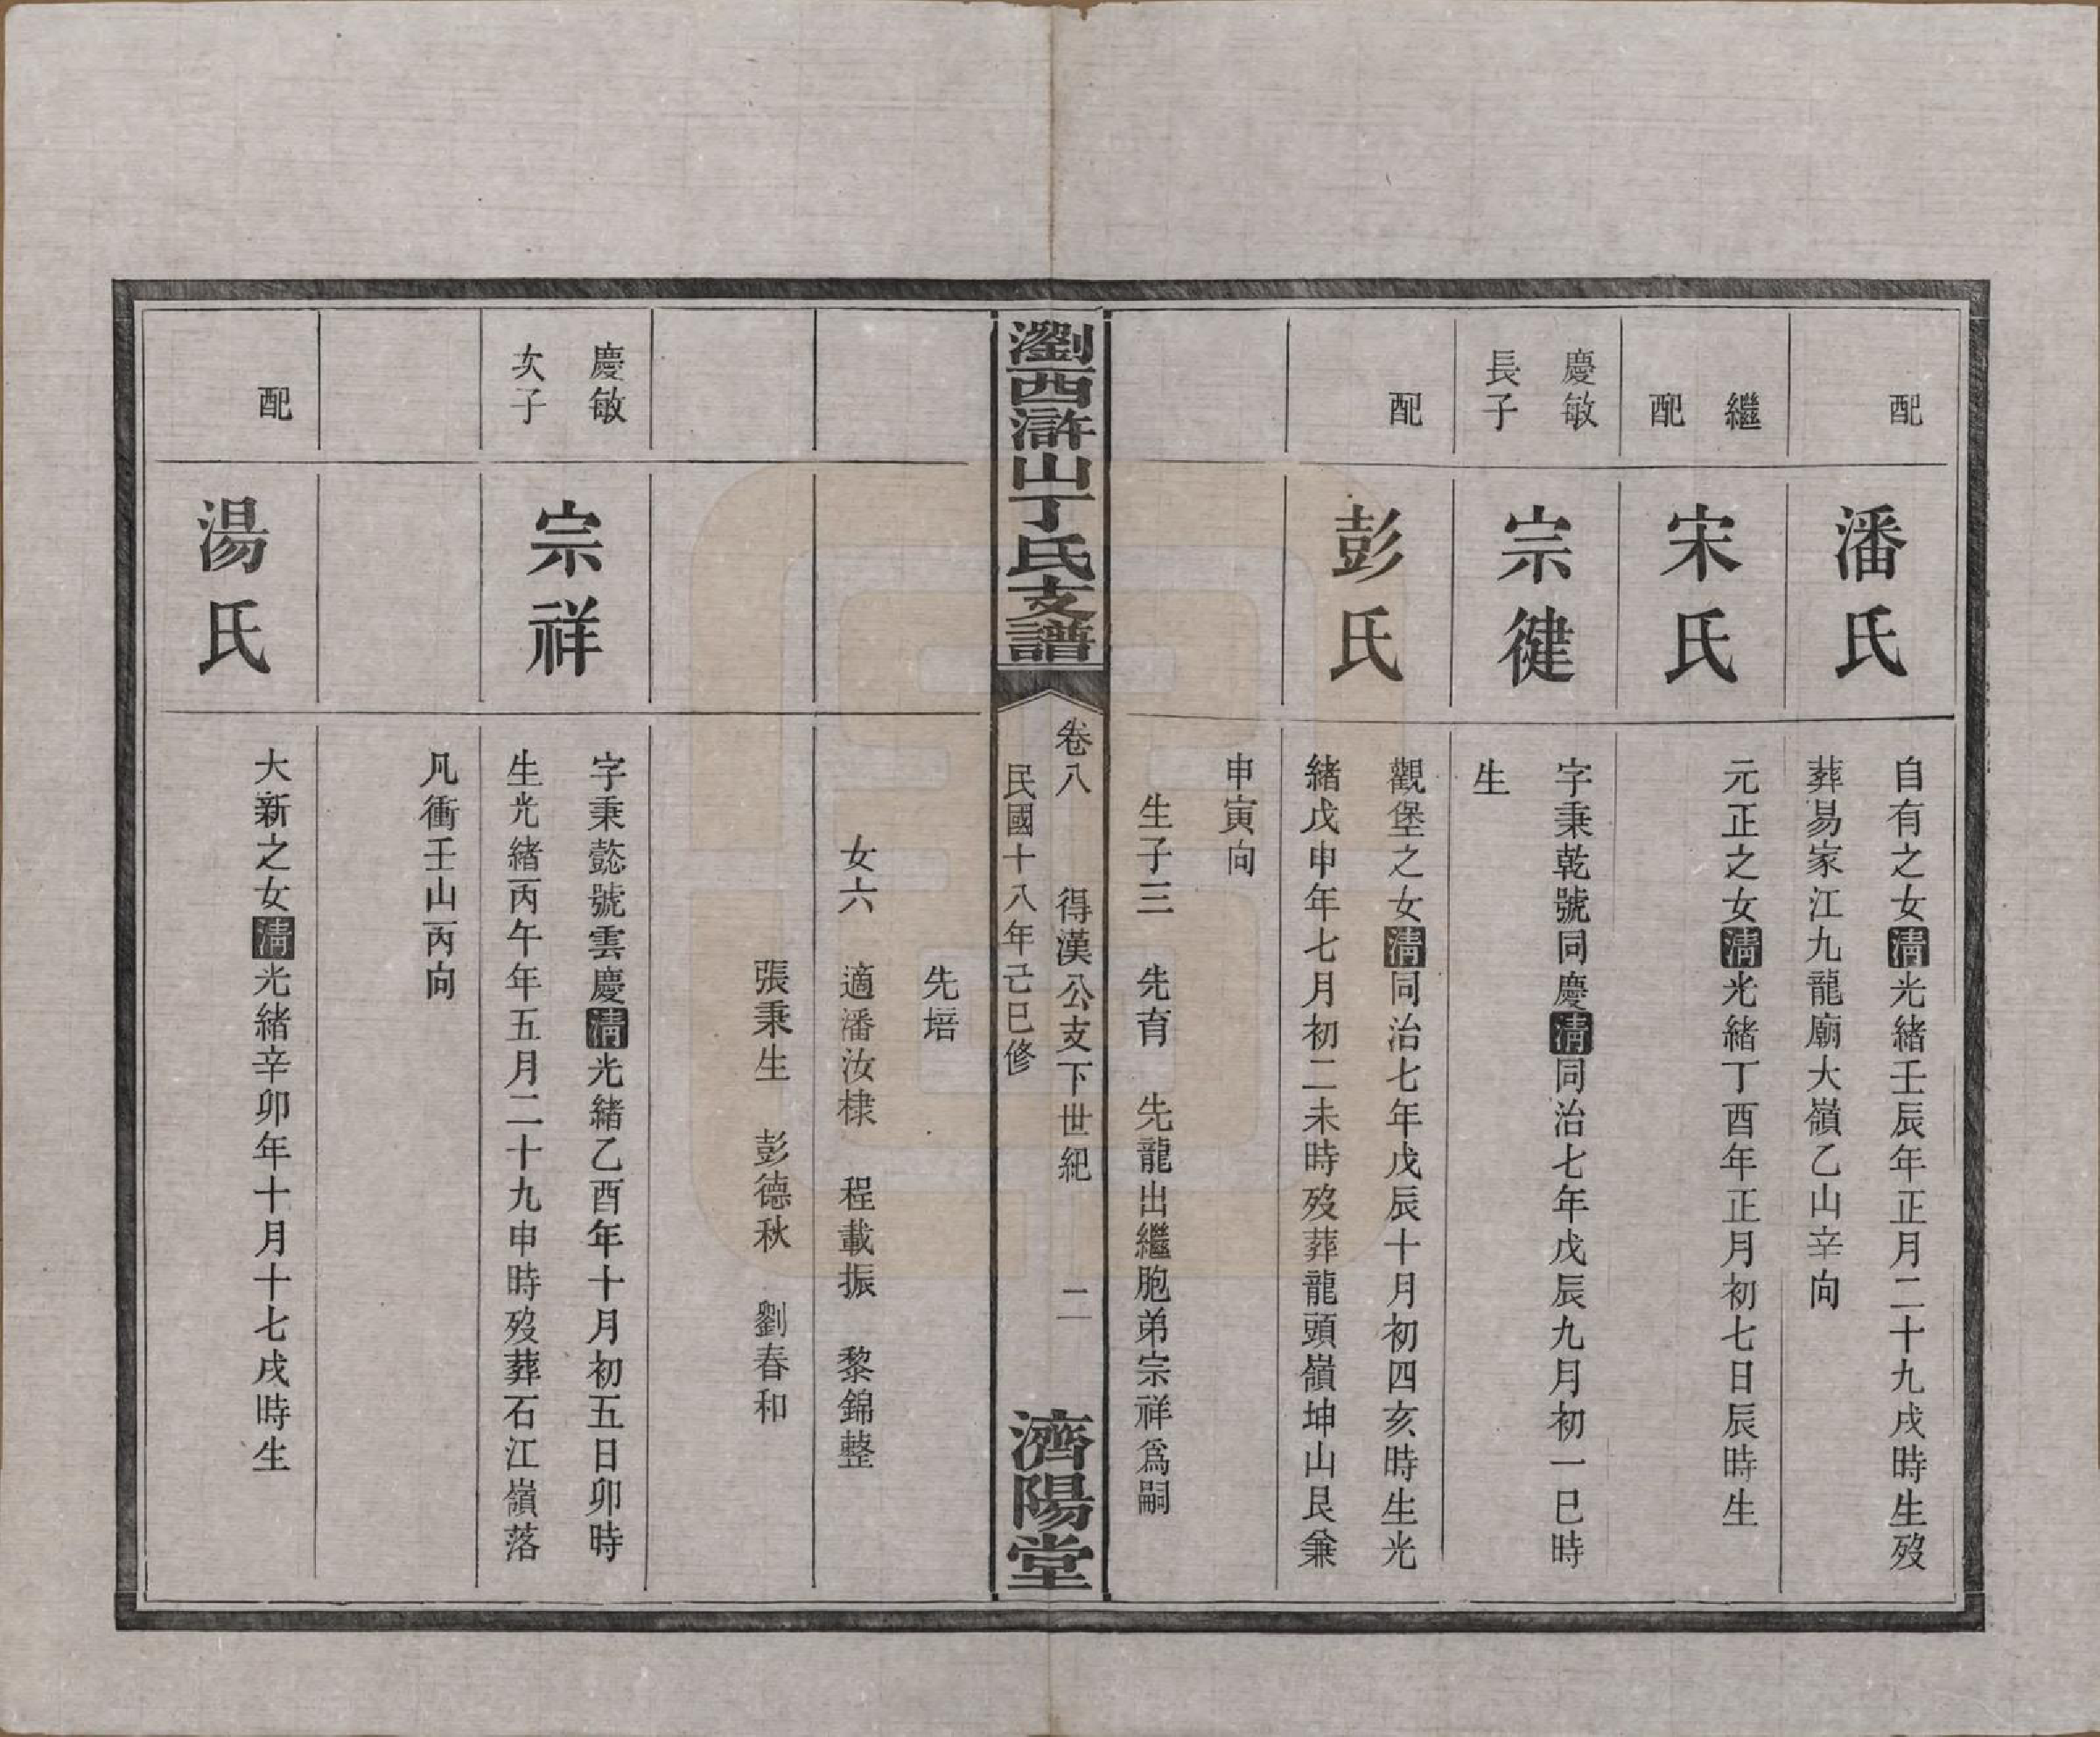 配
潘氏
自有之女清光緒壬辰年正月二十九戌時生歿
葬易家江九龍廟大嶺乙山辛向
繼
配
宋氏
元正之女清光緒丁酉年正月初七日辰時生
慶敏
長子
宗健
字秉乾號同慶清同治七年戊辰九月初一巳時
生
配
彭氏
觀堡之女清同治七年戊辰十月初四亥時生光
緒戊申年七月初二未時歿葬龍頭嶺坤山艮兼
申寅向
生子三 先育 先龍出繼胞弟宗祥爲嗣
瀏西滸山丁氏支譜
卷八 得漢公支下世紀 二
民國十八年己巳修
濟陽堂
先培
女六 適潘汝棣 程載振 黎錦整
張秉生 彭德秋 劉春和
慶敏
次子
宗祥
字秉懿號雲慶清光緒乙酉年十月初五日卯時
生光緒丙午年五月二十九申時歿葬石江嶺落
凡衝壬山丙向
配
湯氏
大新之女清光緒辛卯年十月十七戌時生